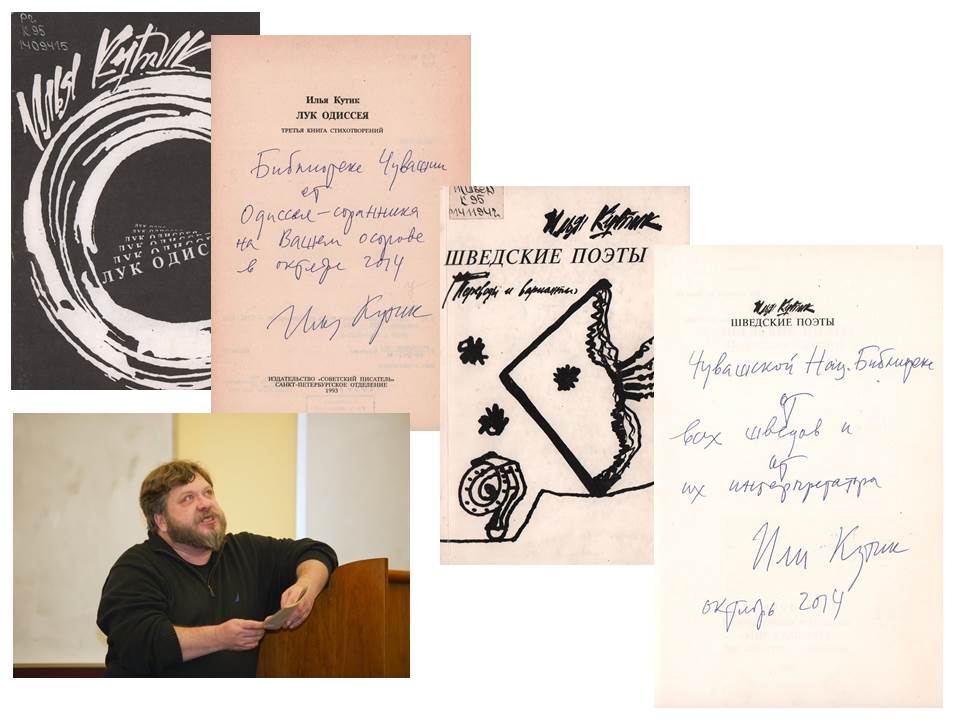 Р2
К 95
1409415
Илья Кутик
ЛУК ОДИССЕЯ
ЛУК ОДИССЕЯ
ЛУК ОДИССЕ
ЛУК ОДИССЕ
ЛУК ОДИСС
Илья Кутик
ЛУК ОДИССЕЯ
ТРЕТЬЯ КНИГА СТИХОТВОРЕНИЙ
Библиотеке Чувашии
от
Одиссея-странника
на Вашем острове
в октябре 2014
Илья Кутик
ИЗДАТЕЛЬСТВО «СОВЕТСКИЙ ПИСАТЕЛЬ»
САНКТ-ПЕТЕРБУРГСКОЕ ОТДЕЛЕНИЕ
1993
К 95
1411942
Илья Кутик
ШВЕДСКИЕ ПОЭТЫ
Переводы и варианты
Илья Кутик
ШВЕДСКИЕ ПОЭТЫ
Чувашской Нац. Библиотеке
от
всех шведов и
от
их интерпретатора
Илья Кутик
октябрь 2014